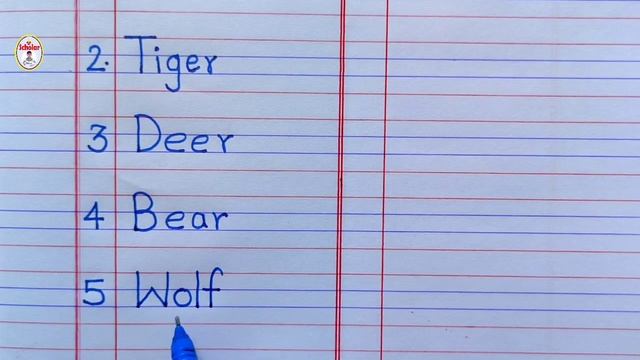 Scholar
2. Tiger
3 Deer
4 Bear
5 Wolf